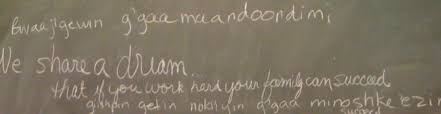 Bwaajigewin g'gaa maandoondimi
We share a dream.
that if you work hard your family can succeed
gishpin getin nokiiyin g'gaa minoshke ezin
succeed